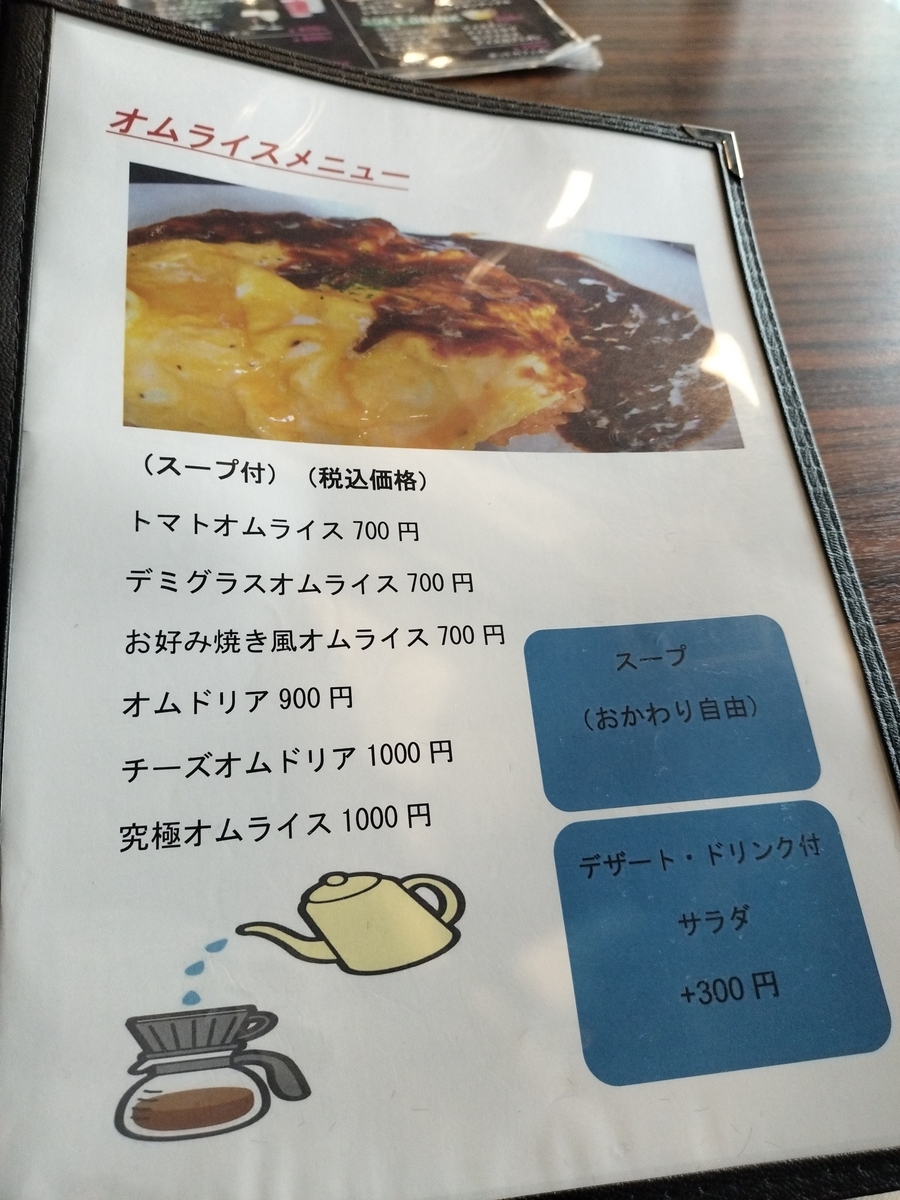 オムライスメニュー
（スープ付）（税込価格）
トマトオムライス 700 円
デミグラスオムライス 700 円
お好み焼き風オムライス 700 円
オムドリア 900 円
チーズオムドリア 1000 円
究極オムライス 1000 円
スープ
（おかわり自由）
デザート・ドリンク付
サラダ
+300 円